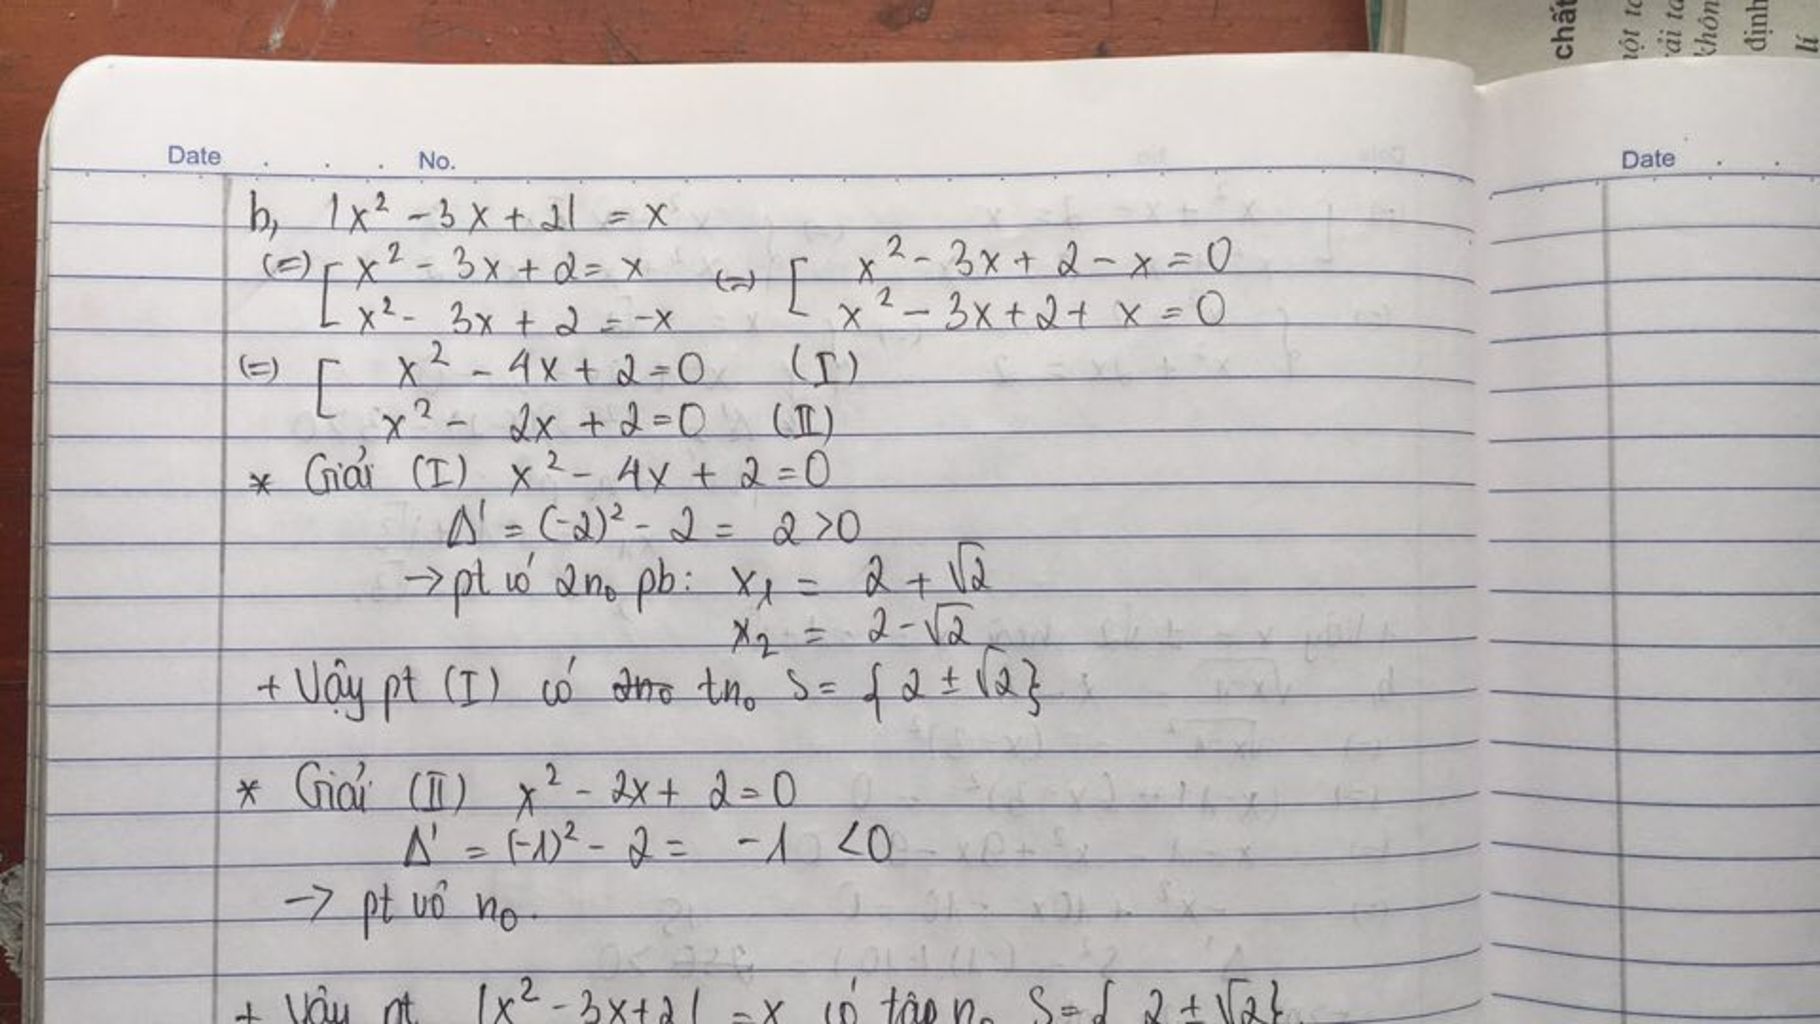 chất
ột tơ
rải tơ
không
định
lí
Date . . . No.
Date . .
b, |x² - 3x + 2| = x
(=) [ x² - 3x + 2 = x (=) [ x² - 3x + 2 - x = 0
x² - 3x + 2 = -x x² - 3x + 2 + x = 0
(=) [ x² - 4x + 2 = 0 (I)
x² - 2x + 2 = 0 (II)
* Giải (I) x² - 4x + 2 = 0
Δ' = (-2)² - 2 = 2 > 0
→ pt có 2n₀ pb: x₁ = 2 + √2
x₂ = 2 - √2
+ Vậy pt (I) có tn₀ S = { 2 ± √2}
* Giải (II) x² - 2x + 2 = 0
Δ' = (-1)² - 2 = -1 < 0
→ pt vô n₀.
+ Vậy pt |x² - 3x + 2| = x có tập n₀ S = { 2 ± √2}.